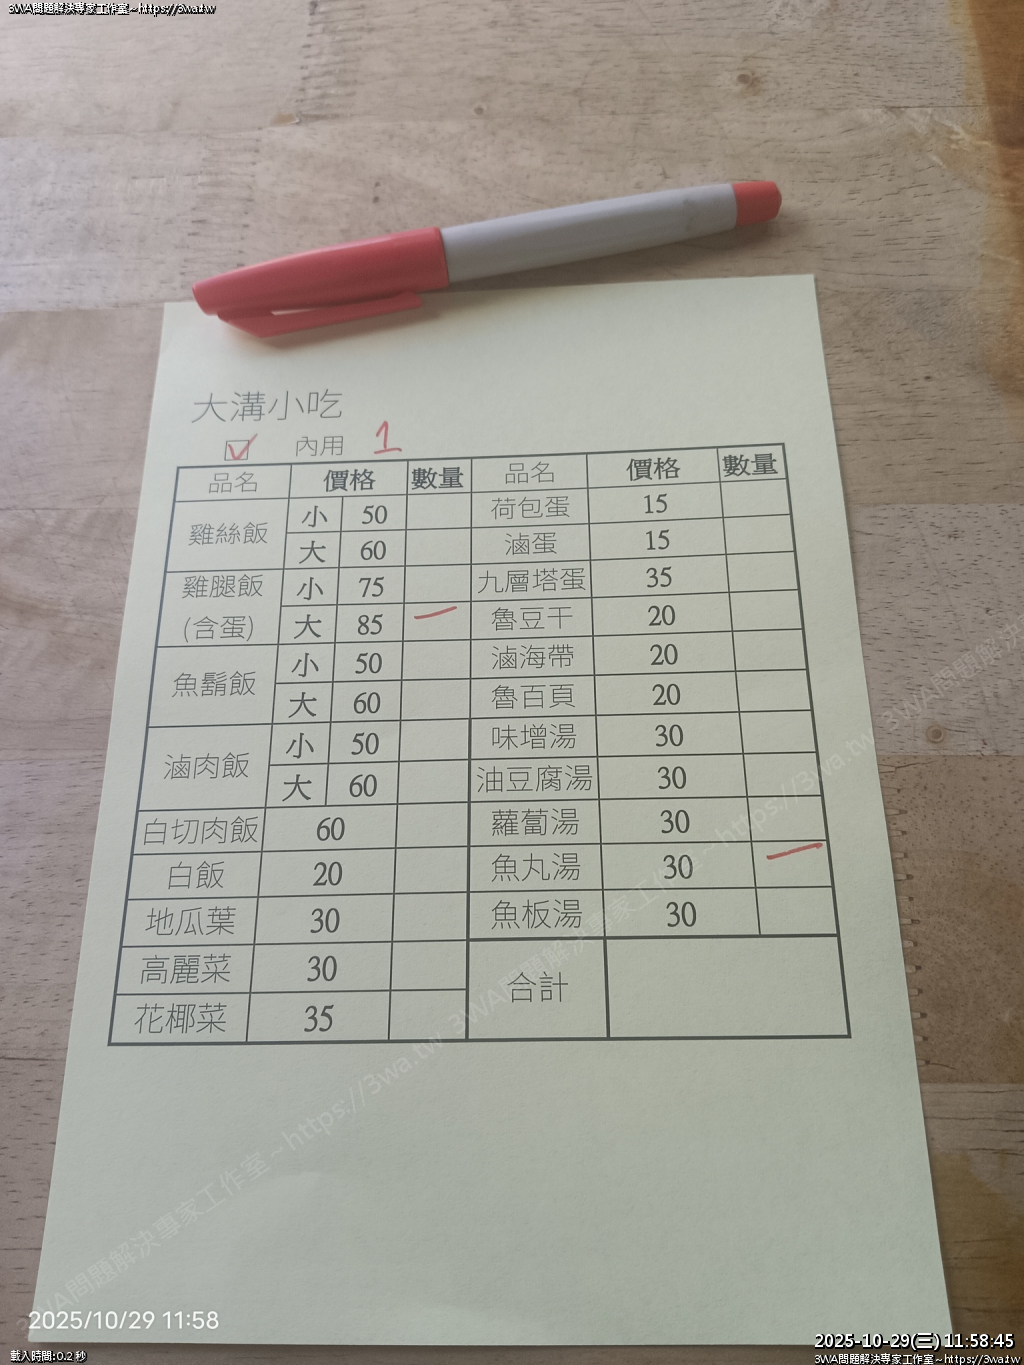 3WA問題解決專家工作室~https://3wa.tw
大溝小吃
☑ 內用 1
品名 價格 數量 品名 價格 數量
雞絲飯 小 50 荷包蛋 15
大 60 滷蛋 15
雞腿飯 小 75 九層塔蛋 35
(含蛋) 大 85 一 魯豆干 20
魚鬍飯 小 50 滷海帶 20
大 60 魯百頁 20
滷肉飯 小 50 味增湯 30
大 60 油豆腐湯 30
白切肉飯 60 蘿蔔湯 30
白飯 20 魚丸湯 30 一
地瓜葉 30 魚板湯 30
高麗菜 30 合計
花椰菜 35
3WA問題解決專家工作室~https://3wa.tw 3WA問題解決專家工作室~https://3wa.tw 3WA問題解決
2025/10/29 11:58
2025-10-29(三) 11:58:45
載入時間:0.2 秒
3WA問題解決專家工作室~https://3wa.tw